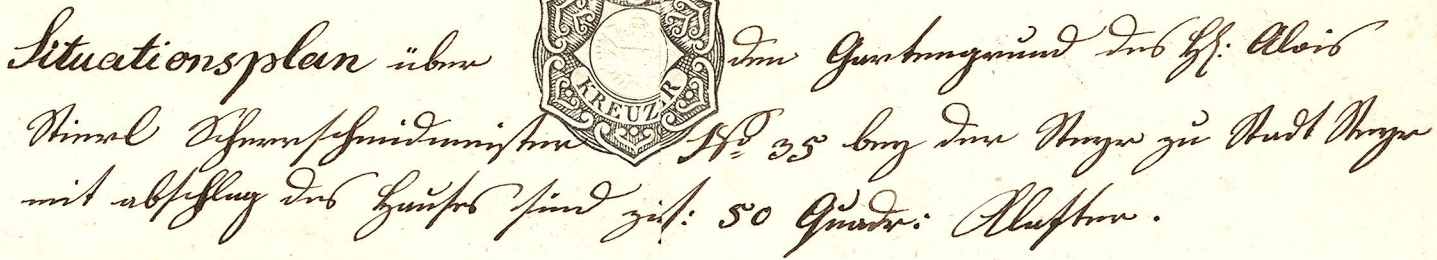 Situationsplan über den Gartengrund des H: Alois
KREUZER
Stierl Scherrschmidmeister No 35 bey der Steyr zu Stadt Steyr
mit abschlag des Hauses sind zus: 50 Quadr: Klafter.